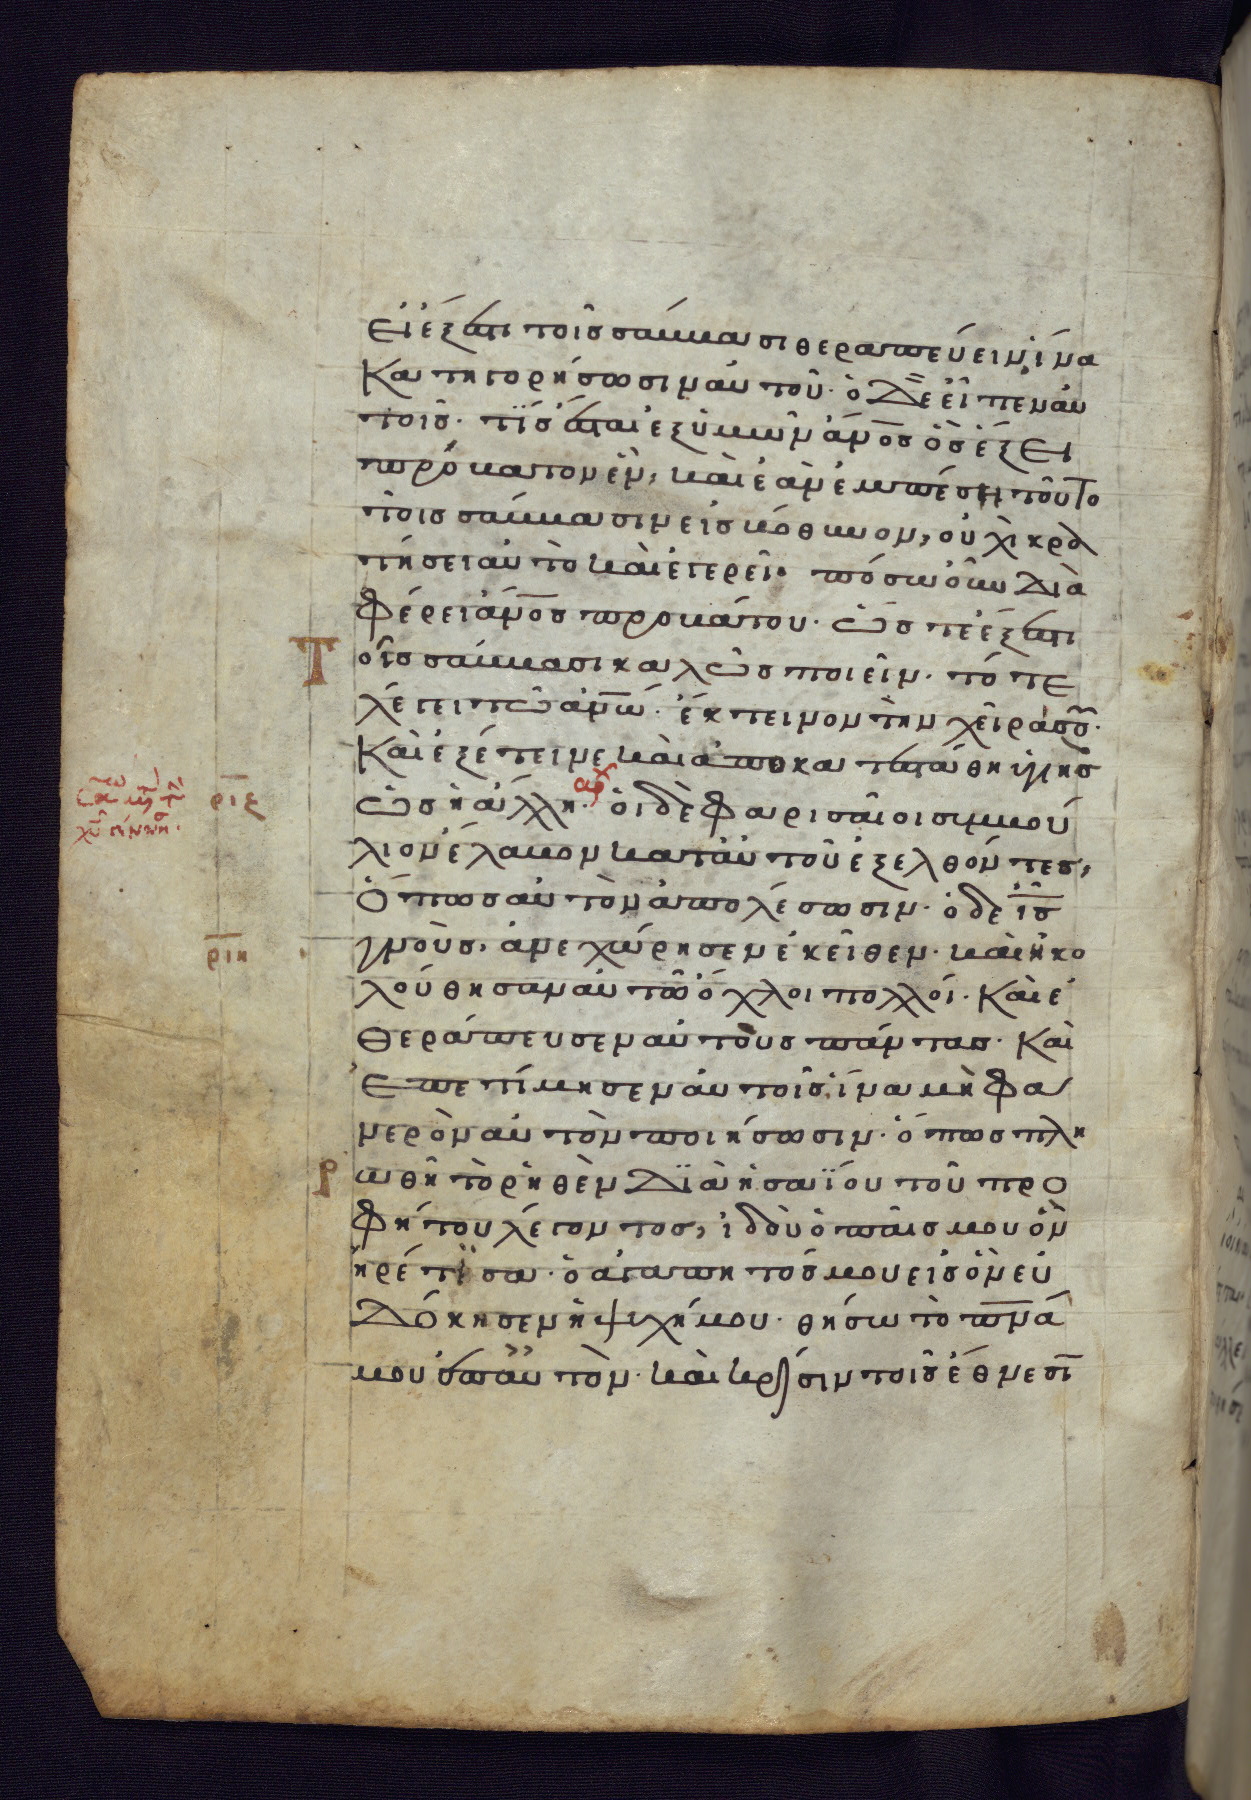 εἰ ἔξεστι τοῖς σάββασι θεραπεύειν ἵνα
κατηγορήσωσιν αὐτοῦ· ὁ δὲ εἶπεν αὐ
τοῖς· τίς ἔσται ἐξ ὑμῶν ἄν̅ος ὃς ἕξει
πρόβατον ἓν, καὶ ἐὰν ἐμπέση τοῦτο
τοῖς σάββασιν εἰς βόθυνον, οὐχὶ κρα
τήσει αὐτὸ καὶ ἐγερεῖ· πόσω οὖν δια
φέρει ἄν̅ος προβάτου· ὥστε ἔξεστι
τοῖς σάββασι καλῶς ποιεῖν· τότε
λέγει τῶ ἀν̅ω· ἔκτεινον τὴν χεῖρά σου·
καὶ ἐξέτεινε καὶ ἀποκατεστάθη ὑγιὴς
ὡς ἡ ἄλλη· αρχ οἱ δὲ φαρισαῖοι συμβού
ρ̅ι̅ϛ̅
λιον ἔλαβον κατ' αὐτοῦ ἐξελθόντες,
ὅπως αὐτὸν ἀπολέσωσιν· ὁ δὲ ι̅ς̅
γνοὺς, ἀνεχώρησεν ἐκεῖθεν· καὶ ἠκο
ρ̅ι̅η̅
λούθησαν αὐτῶ ὄχλοι πολλοί· καὶ ἐ
θεράπευσεν αὐτοὺς πάντας· καὶ
ἐπετίμησεν αὐτοῖς, ἵνα μὴ φα
νερὸν αὐτὸν ποιήσωσιν· ὅπως πλη
ρωθῆ τὸ ῥηθὲν διὰ ἡσαΐου τοῦ προ
φήτου λέγοντος, ἰδοὺ ὁ παῖς μου ὃν
ἡρέτισα· ὁ ἀγαπητός μου εἰς ὃν εὐ
δόκησεν ἡ ψυχή μου· θήσω τὸ π̅ν̅ά
μου ἐπ' αὐτὸν· καὶ κρίσιν τοῖς ἔθνεσι